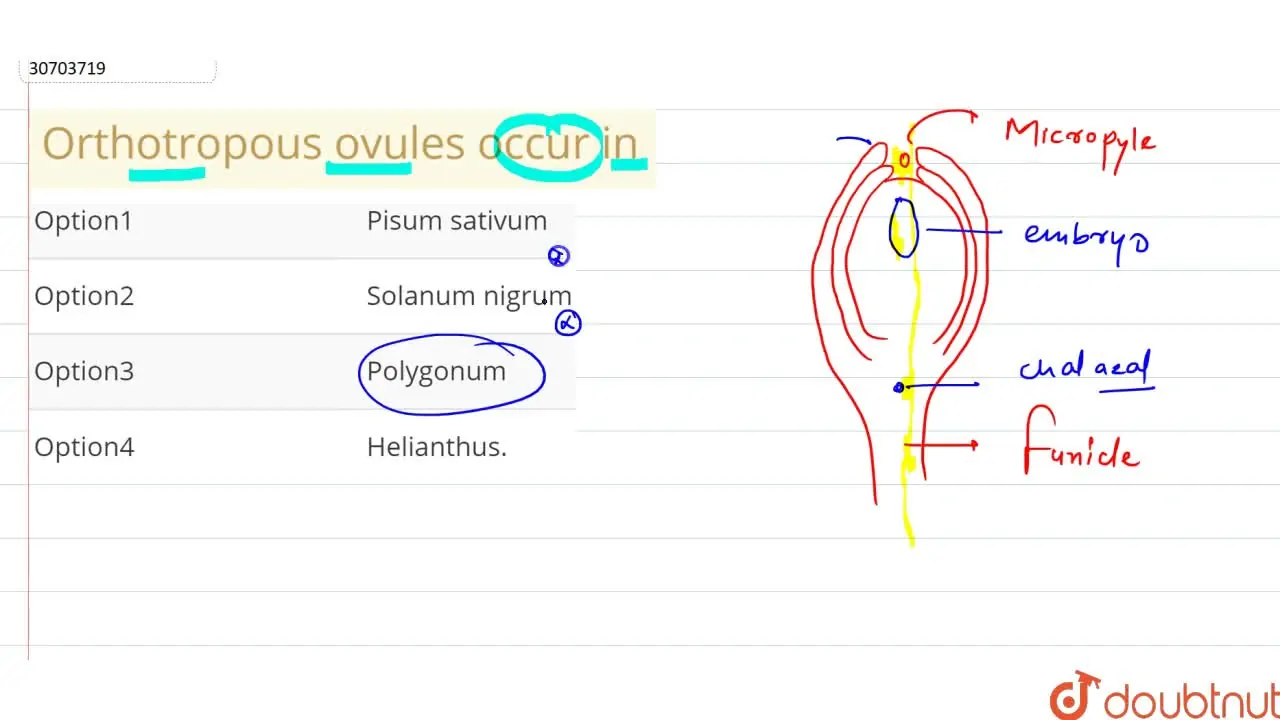 30703719
Orthotropous ovules occur in
Option1 Pisum sativum
Option2 Solanum nigrum
Option3 Polygonum
Option4 Helianthus.
Micropyle
embryo
chalazal
funicle
doubtnut